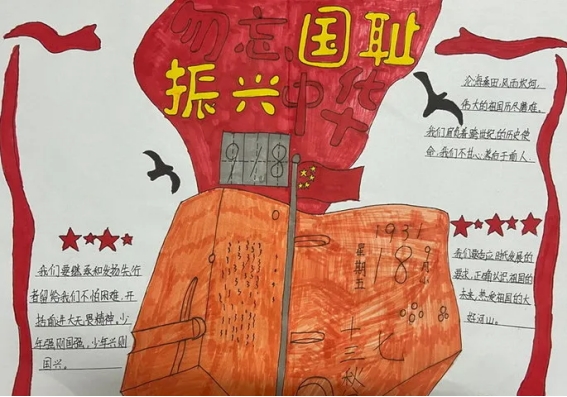 勿忘国耻
振兴中华
918
沧海桑田,风雨坎坷,
伟大的祖国历尽磨难,
我们肩负着跨世纪的历史使
命,我们不甘心落后于前人.
1931
18
星期五
十七
十三
秋
我们要继承和发扬先行
者留给我们不怕困难,开
拓前进大无畏精神,少
年强则国强,少年兴则
国兴。
我们要
正确认识祖国的
未来,热爱祖国的大
好河山。